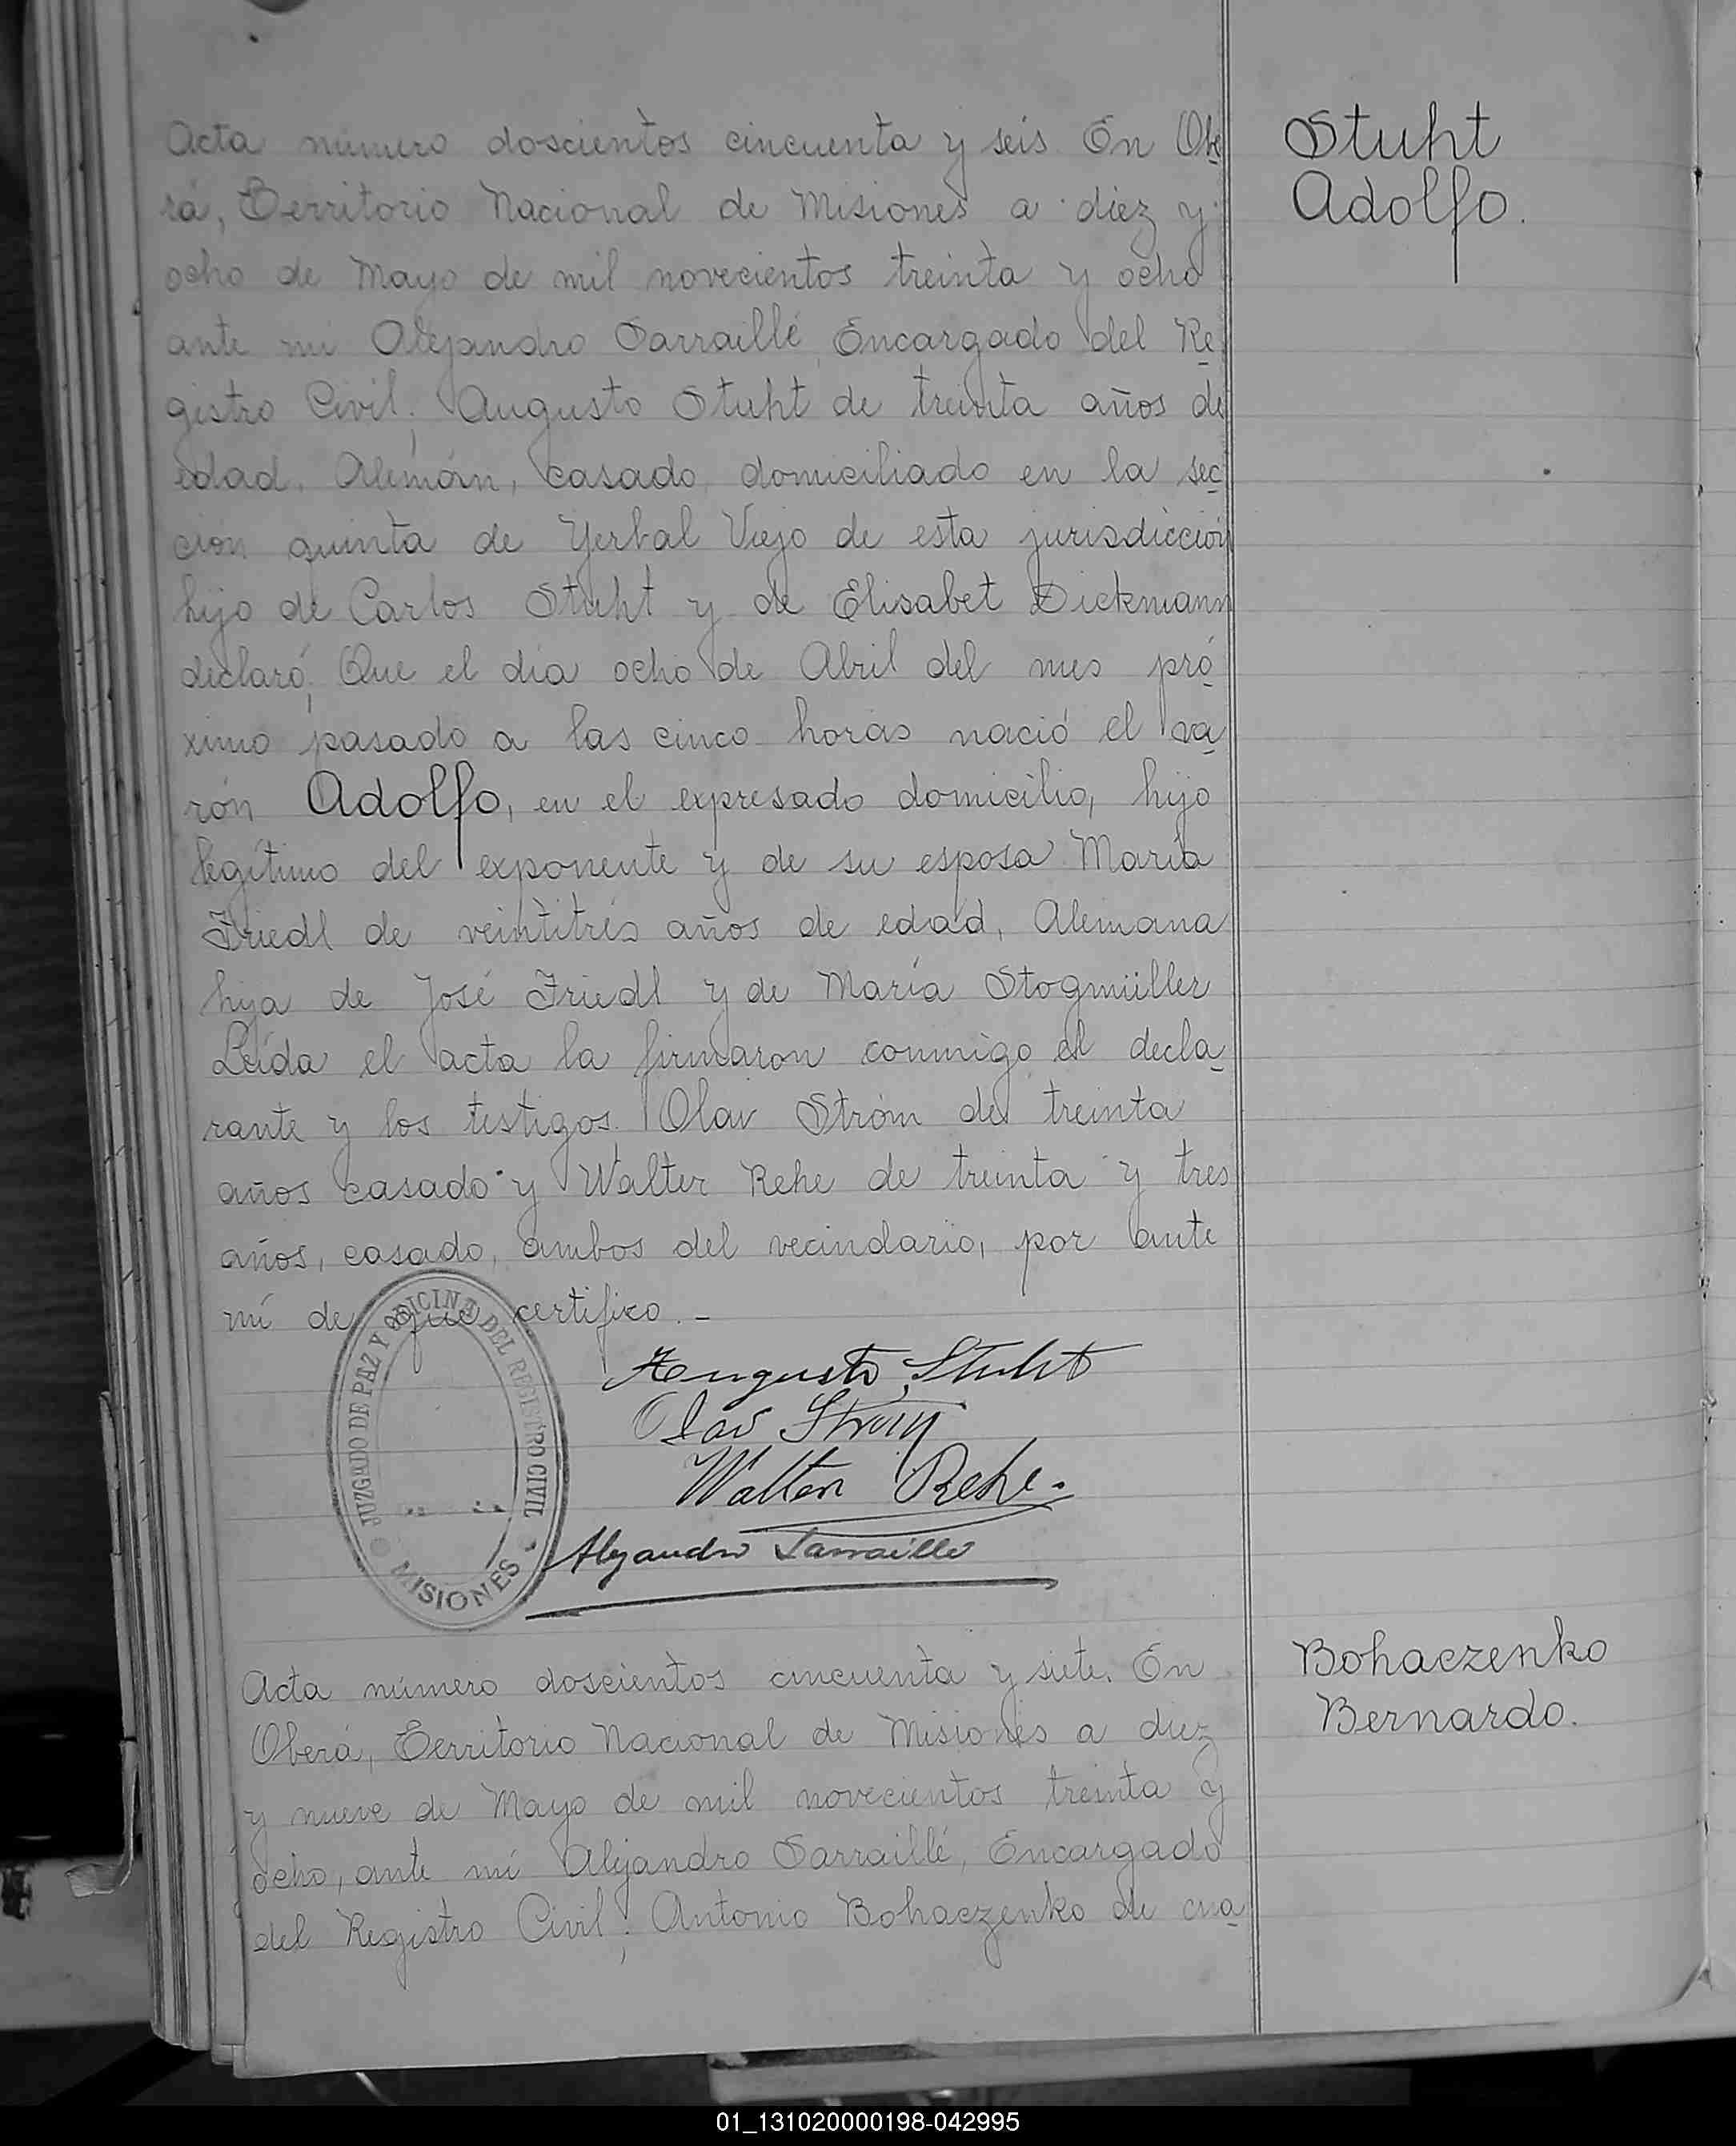 Stuht
Adolfo.
Acta número doscientos cincuenta y seis. En Obe
rá, Territorio Nacional de Misiones a diez y
ocho de Mayo de mil novecientos treinta y ocho
ante mi Alejandro Sarraillé, Encargado del Re
gistro Civil; Augusto Stuht de treinta años de
edad, Alemán, casado, domiciliado en la sec
cion quinta de Yerbal Viejo de esta jurisdicción
hijo de Carlos Stuht y de Elisabet Dickmann
declaró; Que el día ocho de Abril del mes pró
ximo pasado a las cinco horas nació el va
rón Adolfo, en el expresado domicilio, hijo
legítimo del exponente y de su esposa María
Friedl de veintitrés años de edad, Alemana
hija de José Friedl y de María Stogmüller
Leída el acta la firmaron conmigo el decla
rante y los testigos. Olav Ström de treinta
años casado y Walter Rehe de treinta y tres
años, casado, ambos del vecindario, por ante
mí de que certifico.-
Augusto Stuht
Olav Ström
Walter Rehe.
Alejandro Sarraillé
JUZGADO DE PAZ Y OFICINA DEL REGISTRO CIVIL
MISIONES
Bohaczenko
Bernardo.
Acta número doscientos cincuenta y siete. En
Oberá, Territorio Nacional de Misiones a diez
y nueve de Mayo de mil novecientos treinta y
ocho, ante mí Alejandro Sarraillé, Encargado
del Registro Civil; Antonio Bohaczenko de cua
01_131020000198-042995